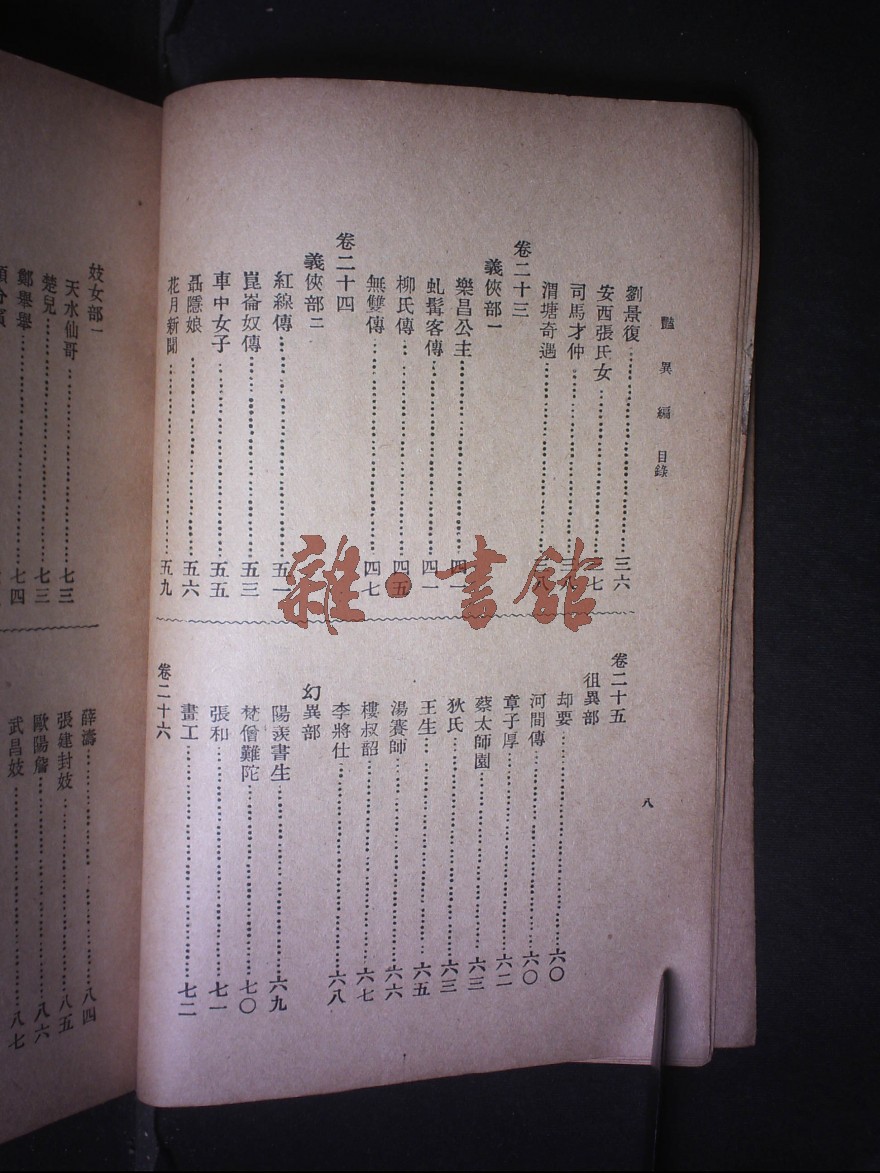 豔異編 目錄
八
劉景復……三六
安西張氏女……三七
司馬才仲
渭塘奇遇……三八
卷二十三
義俠部一
樂昌公主……四一
虬髯客傳……四一
柳氏傳……四五
無雙傳……四七
卷二十四
義俠部二
紅線傳……五一
崑崙奴傳……五三
車中女子……五五
聶隱娘……五六
花月新聞……五九
卷二十五
徂異部
却要……六〇
河間傳……六〇
章子厚……六二
蔡太師園……六三
狄氏……六三
王生……六五
湯賽師……六六
樓叔韶……六七
李將仕……六八
幻異部
陽羨書生……六九
梵僧難陀……七〇
張和……七一
畫工……七二
卷二十六
妓女部一
天水仙哥……七三
楚兒……七三
鄭舉舉……七四
薛濤……八四
張建封妓……八五
歐陽詹……八六
武昌妓……八七
雜·書館